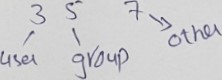 3 5 7
user group other